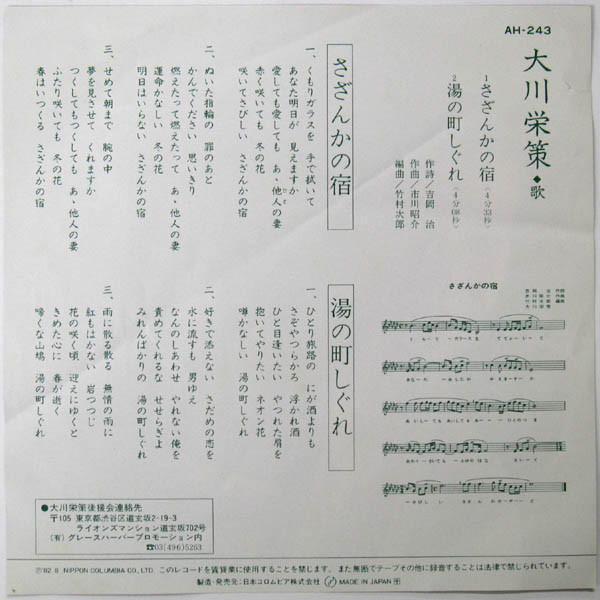 AH-243
大川栄策◆歌
1 さざんかの宿(4分33秒)
2 湯の町しぐれ
作詩/吉岡 治
作曲/市川昭介
編曲/竹村次郎
さざんかの宿
一、くもりガラスを 手で拭いて
あなた明日が 見えますか
愛しても愛しても あゝ他人の妻
赤く咲いても 冬の花
咲いてさびしい さざんかの宿
二、ぬいた指輪の 罪のあと
かんでください 思いきり
燃えたって燃えたって あゝ他人の妻
運命かなしい 冬の花
明日はいらない さざんかの宿
三、せめて朝まで 腕の中
夢を見させて くれますか
つくしてもつくしても あゝ他人の妻
ふたり咲いても 冬の花
春はいつくる さざんかの宿
湯の町しぐれ
一、ひとり旅路の にが酒よりも
さぞやつらかろ 浮かれ酒
ひと目逢いたい やつれた肩を
抱いてやりたい ネオン花
噂かなしい 湯の町しぐれ
二、好きで添えない さだめの恋を
水に流すも 男ゆえ
なんのしあわせ やれない俺を
責めてくれるな せせらぎよ
みれんばかりの 湯の町しぐれ
三、雨に散る散る 無情の雨に
紅もはかない 岩つつじ
花の咲く頃 迎えにゆくと
きめた心に 春が逝く
啼くな山鳩 湯の町しぐれ
さざんかの宿
●大川栄策後援会連絡先
〒105 東京都渋谷区道玄坂2-19-3
ライオンズマンション道玄坂702号
(有)グレースハーバープロモーション内
☎03(496)5263
Ⓟ'82.8 NIPPON COLUMBIA CO., LTD. このレコードを賃貸業に使用することを禁じます。また無断でテープその他に録音することは法律で禁じられています。
製造・発売元:日本コロムビア株式会社 MADE IN JAPAN